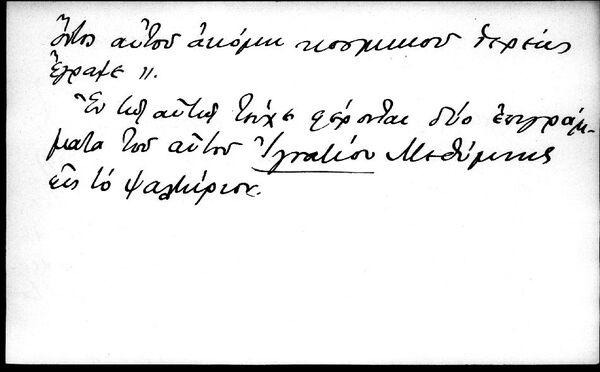 ὄντος αὐτοῦ ἀκόμη κοσμικοῦ ἱερέως
ἔγραψε».
Ἐν τῷ αὐτῷ τεύχει φέρονται δύο ἐπιγράμ-
ματα τοῦ αὐτοῦ Ἰγνατίου Μηθύμνης
εἰς τὸ ψαλτήριον.